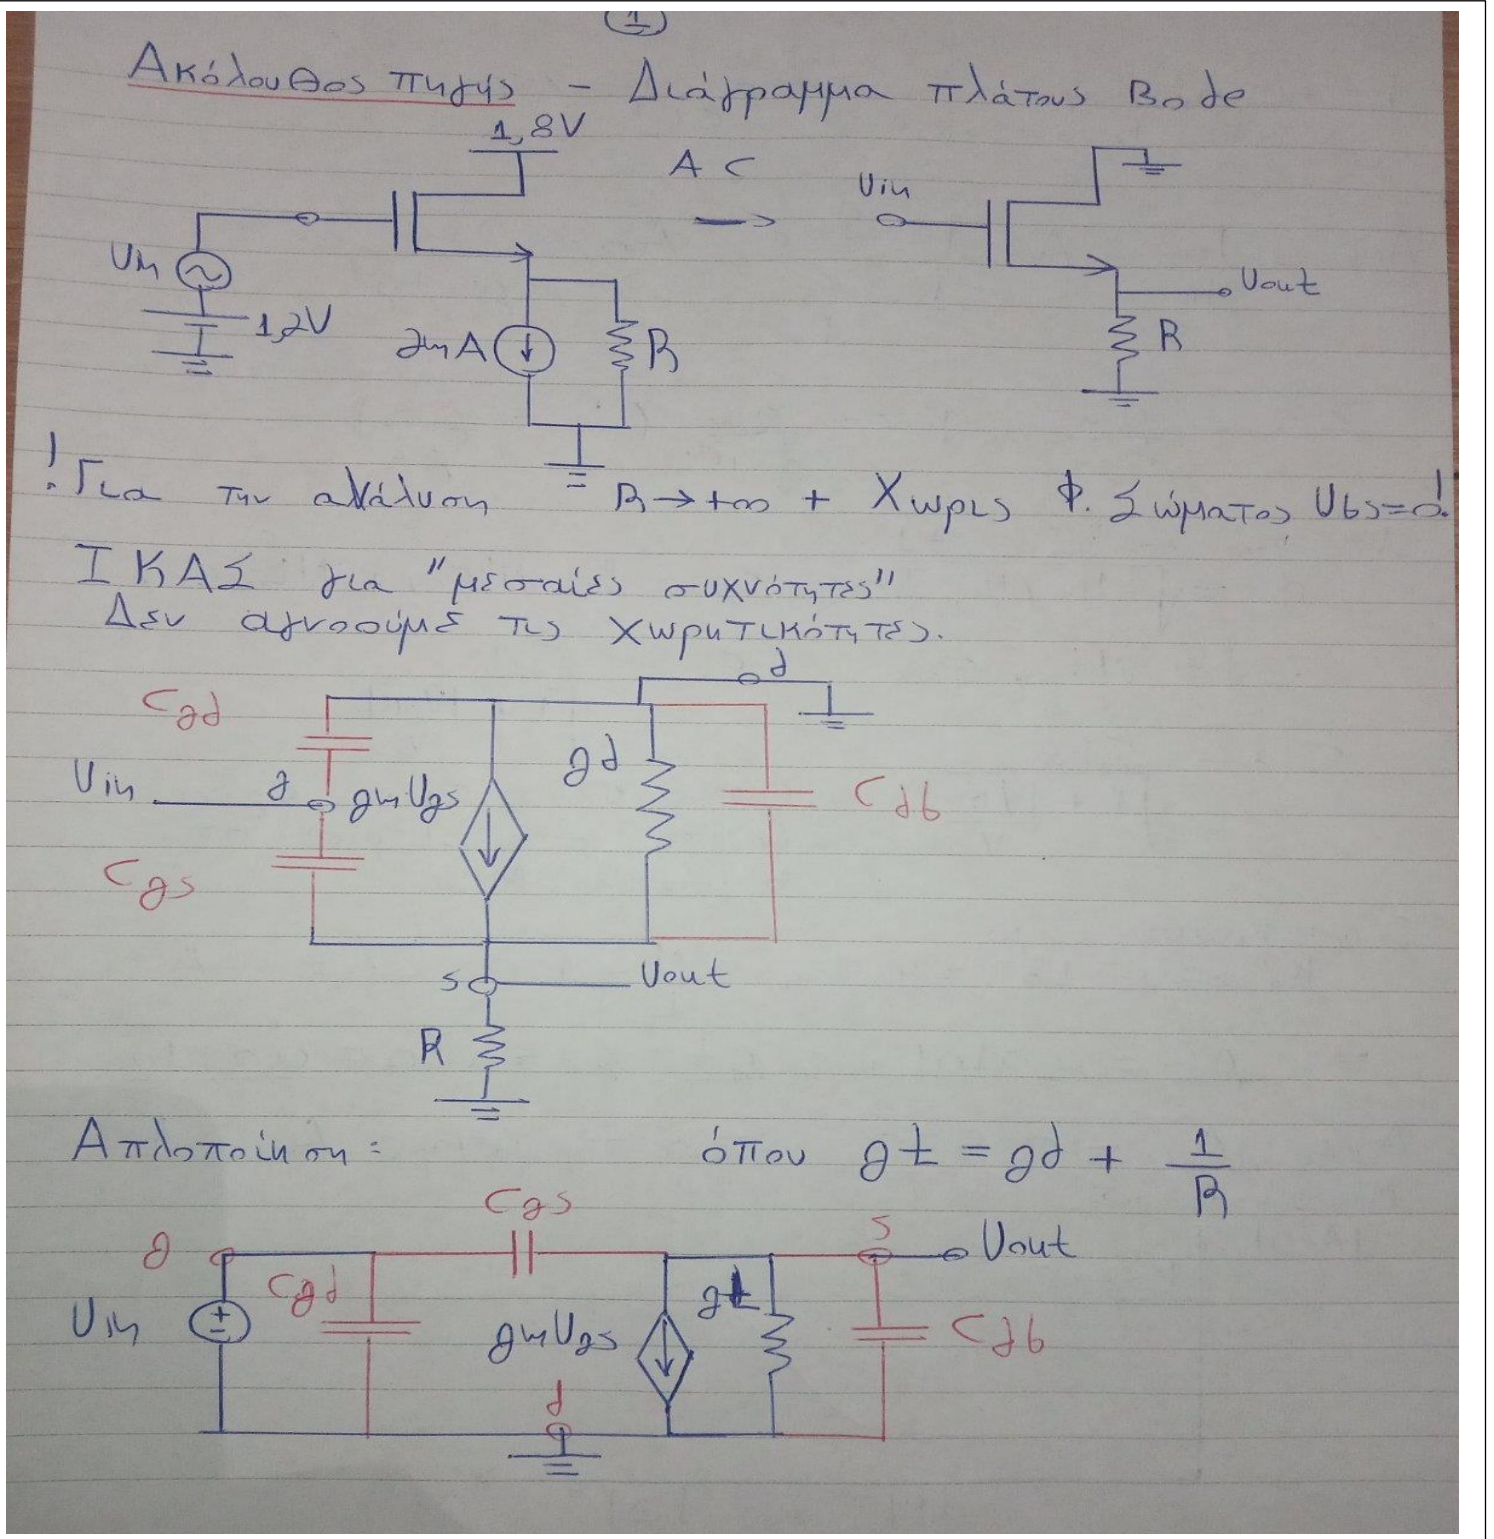 1
Ακόλουθος πηγής - Διάγραμμα πλάτους Bode
1,8V
AC
Uin
Uin
Uout
1,2V
2mA
R
R
! Για την ανάλυση R→+∞ + Χωρις Φ. Σώματος Ubs=0!
ΙΚΑΣ για "μεσαίες συχνότητες"
Δεν αγνοούμε τις χωρητικότητες.
d
Cgd
gd
Uin
g
gmUgs
Cdb
Cgs
s
Uout
R
Απλοποίηση: όπου gt = gd + 1/R
Cgs
g
s
Uout
Cgd
gt
Uin
gmUgs
Cdb
d